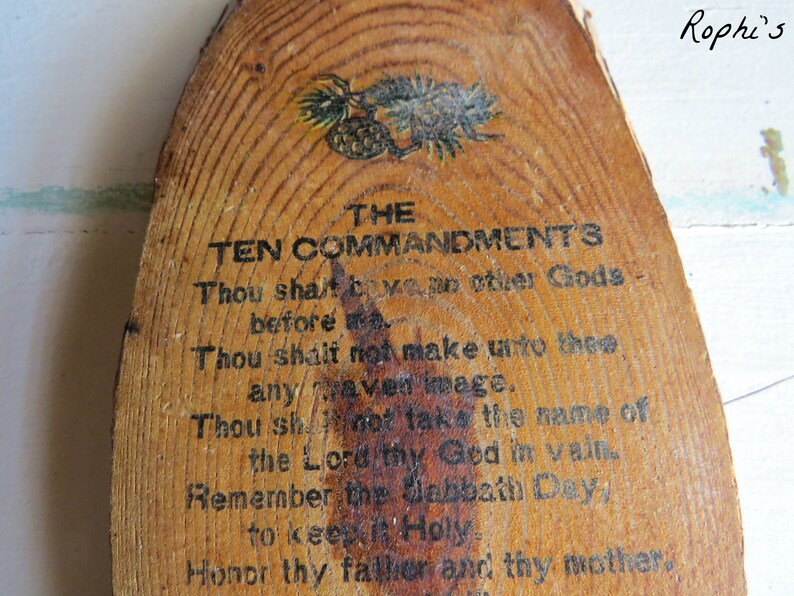 Rophi's
THE
TEN COMMANDMENTS
Thou shalt have no other Gods
before me.
Thou shalt not make unto thee
any graven image.
Thou shalt not take the name of
the Lord thy God in vain.
Remember the Sabbath Day,
to keep it Holy.
Honor thy father and thy mother.